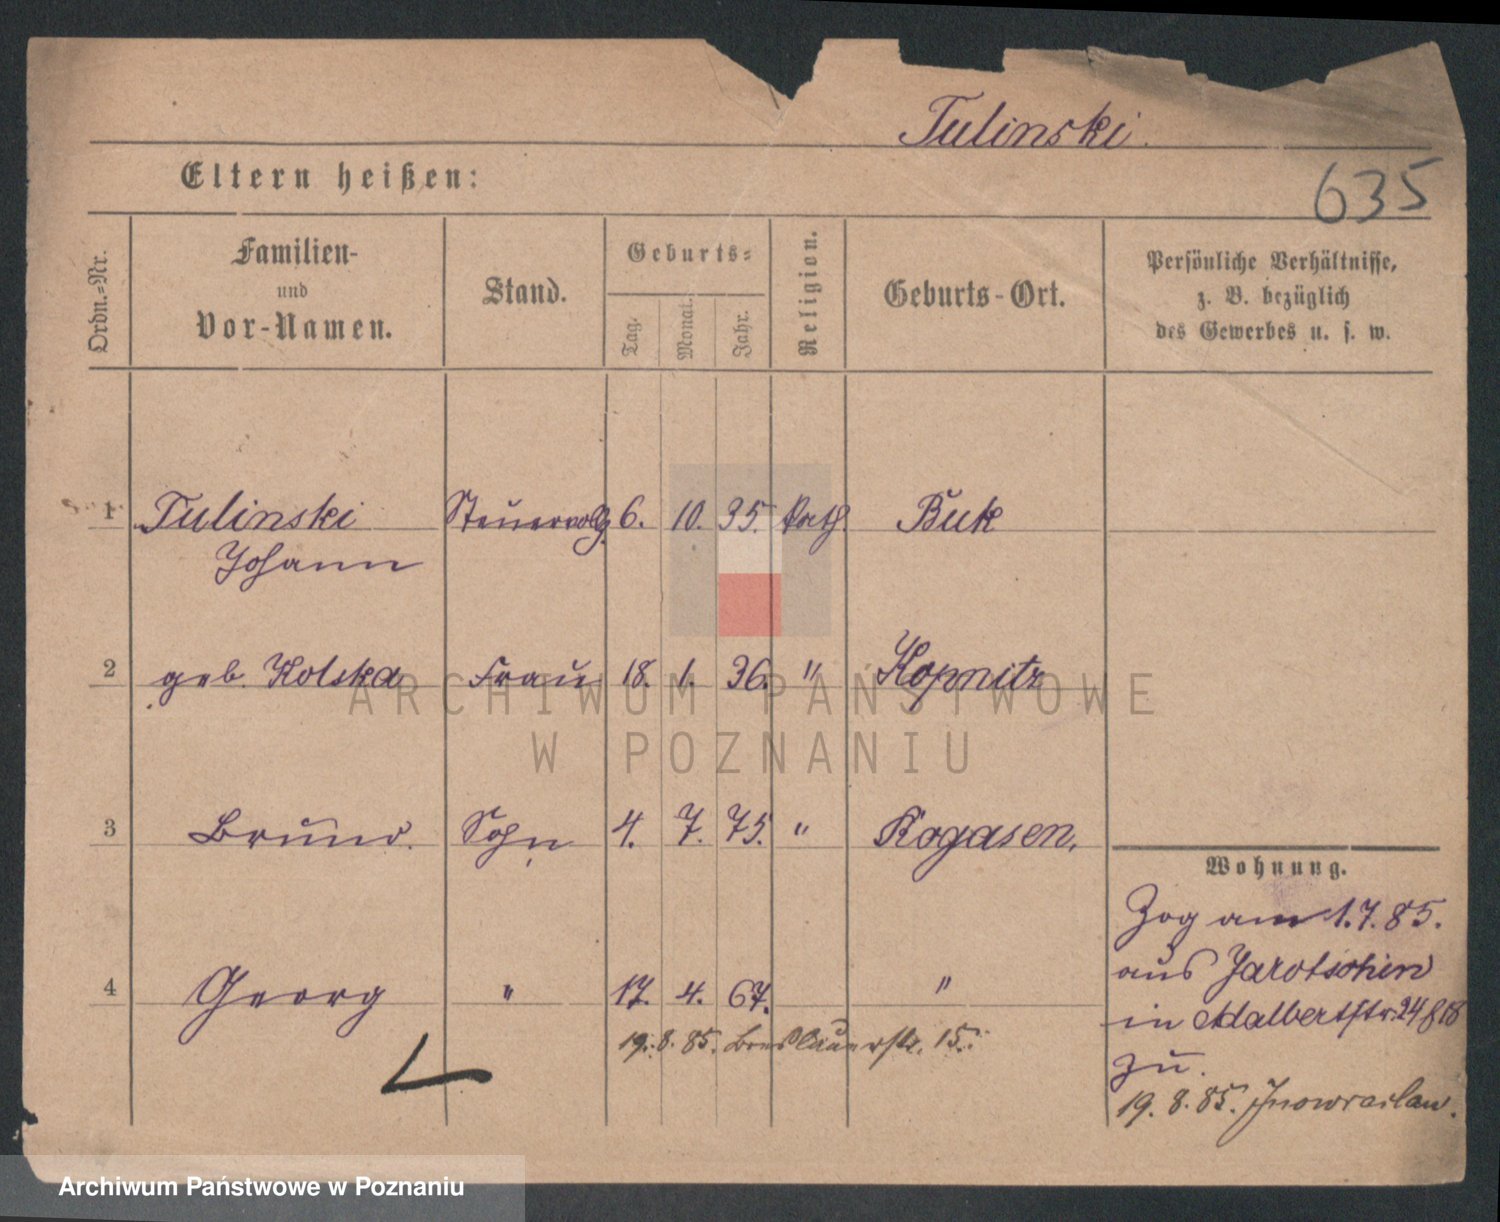 Tulinski.
635
Eltern heißen:
Ordn.=Nr.
Familien-
und
Vor-Namen.
Stand.
Geburts=
Tag.
Monat.
Jahr.
Religion.
Geburts-Ort.
Persönliche Verhältnisse,
z. B. bezüglich
des Gewerbes u. s. w.
1 Tulinski 6. 10. 35. Kath. Buk
Johann
2 geb. Kolska Frau 18. 1. 36. " Kopnitz
ARCHIWUM PAŃSTWOWE
W POZNANIU
3 Bruno. Sohn 4. 7. 75. " Rogasen.
Wohnung.
Zog am 1.7.85.
aus Jarotschin
in Adalbertstr. 24
zu.
4 Georg " 17. 4. 67. "
19. 8. 85. Breslauerstr. 15.
19. 8. 85. Inowraclaw.
Archiwum Państwowe w Poznaniu